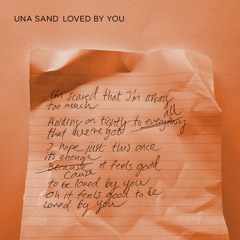 UNA SAND LOVED BY YOU
I'm scared that I'm asking
too much
Holding on tightly to everything
all
that we've got
I hope just this once
it's enough
Because it feels good
Cause
to be loved by you
oh it feels good to be
loved by you